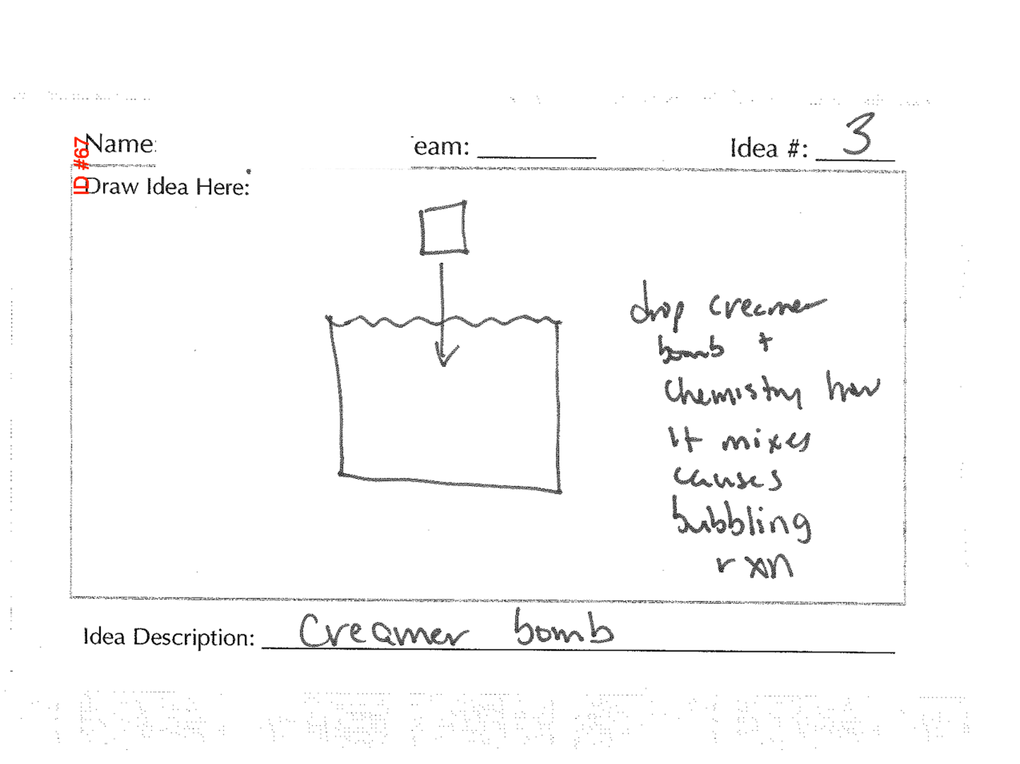 ID #67
Name:
eam:
Idea #: 3
Draw Idea Here:
drop creamer
bomb +
chemistry how
it mixes
causes
bubbling
rxn
Idea Description: Creamer bomb